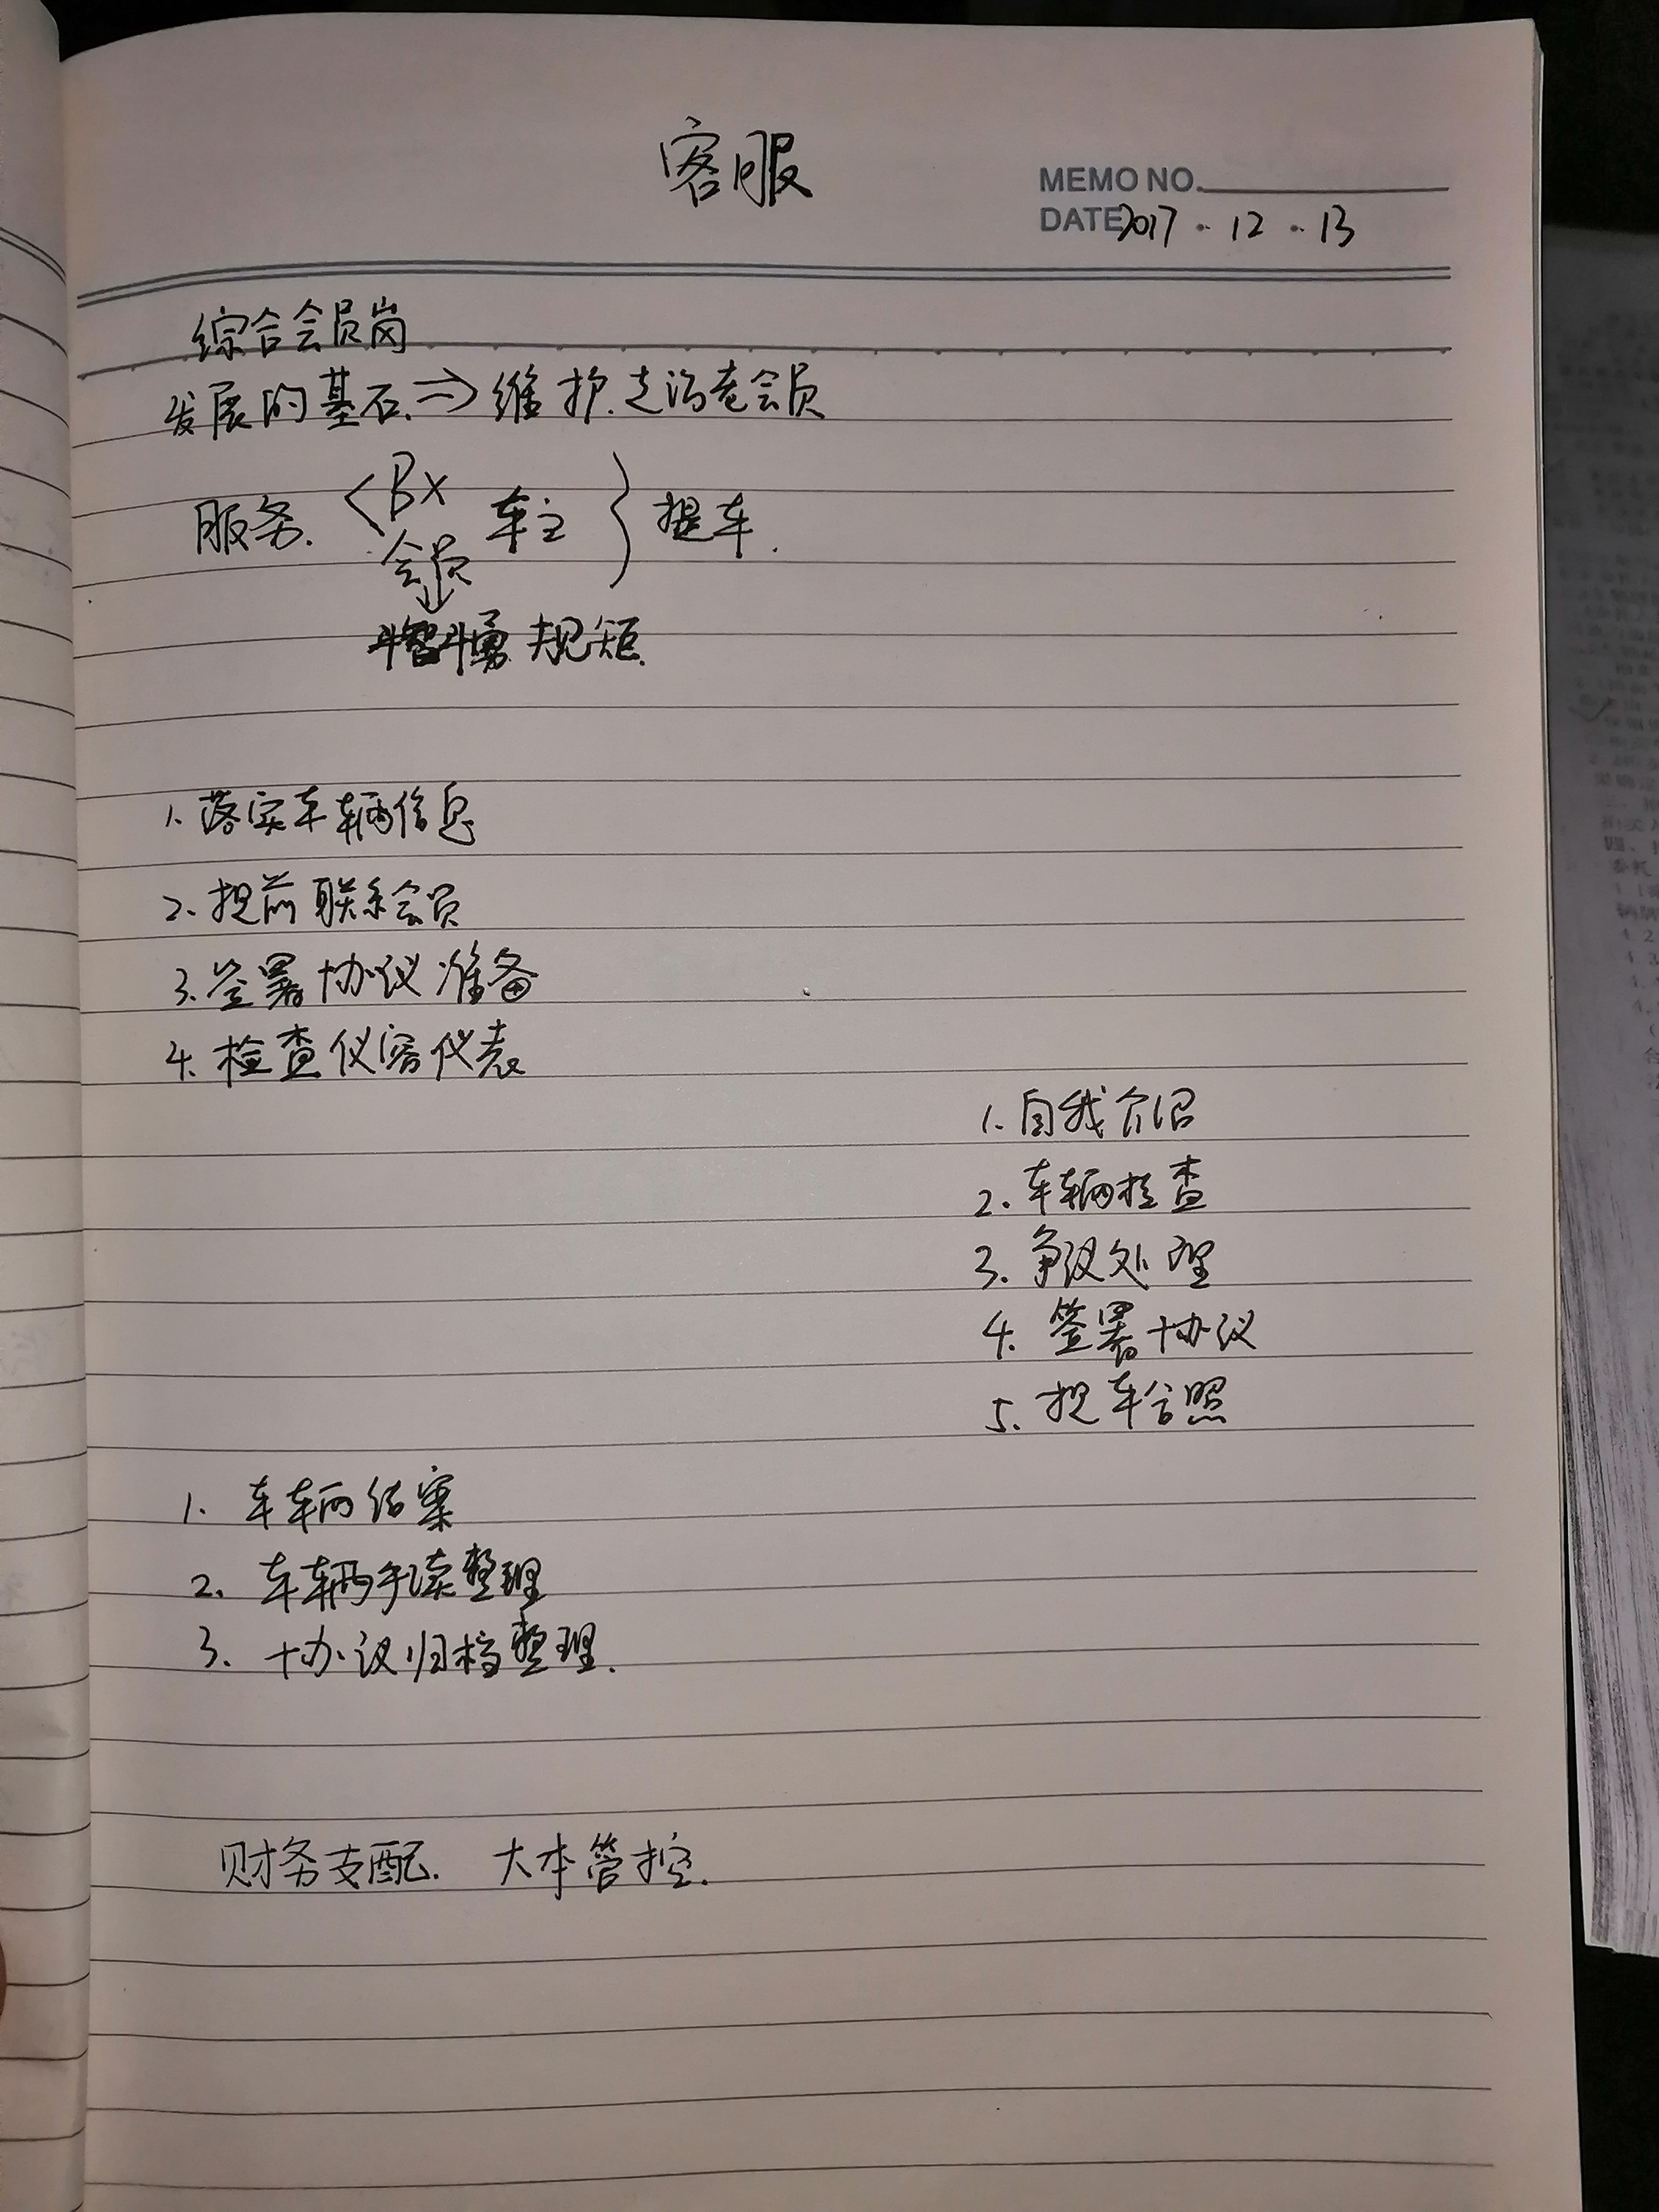 客服
MEMO NO.
DATE 2017 · 12 · 13
综合会员岗
发展的基石 ⇒ 维护.走沟老会员
服务. < Bx
车主 } 提车.
会员
↓
斗智斗勇 规矩.
1. 落实车辆信息
2. 提前联系会员
3. 签署协议准备
4. 检查仪容仪表
1. 自我介绍
2. 车辆检查
3. 争议处理
4. 签署协议
5. 提车合照
1. 车辆结案
2. 车辆手续整理
3. 协议归档整理.
财务支配. 大本管控.